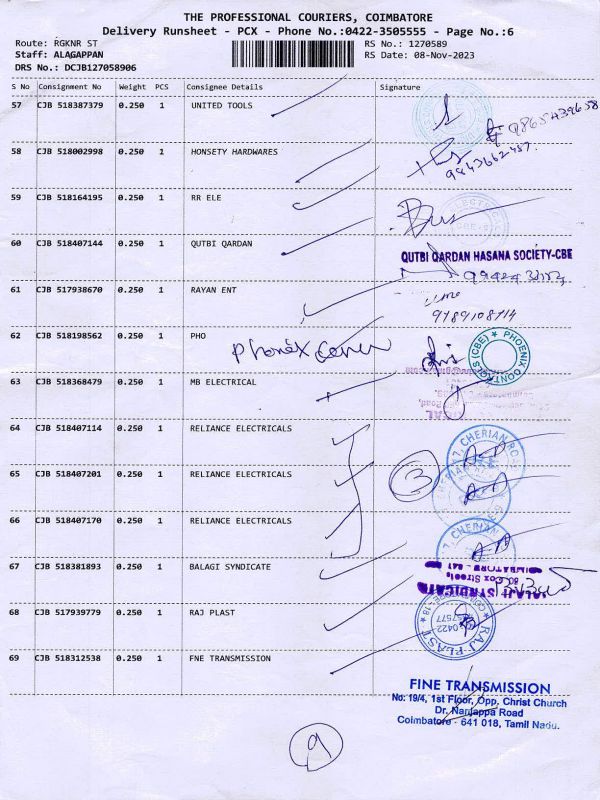 THE PROFESSIONAL COURIERS, COIMBATORE
Delivery Runsheet - PCX - Phone No.:0422-3505555 - Page No.:6
Route: RGKNR ST
RS No.: 1270589
Staff: ALAGAPPAN
RS Date: 08-Nov-2023
DRS No.: DCJB127058906
S No Consignment No Weight PCS Consignee Details Signature
57 CJB 518387379 0.250 1 UNITED TOOLS
58 CJB 518002998 0.250 1 HONSETY HARDWARES
9843662487
59 CJB 518164195 0.250 1 RR ELE
60 CJB 518407144 0.250 1 QUTBI QARDAN
QUTBI QARDAN HASANA SOCIETY-CBE
61 CJB 517938670 0.250 1 RAYAN ENT
9789108714
62 CJB 518198562 0.250 1 PHO
Phonéx
PHOENIX CONTACTS (CBE)
63 CJB 518368479 0.250 1 MB ELECTRICAL
64 CJB 518407114 0.250 1 RELIANCE ELECTRICALS
65 CJB 518407201 0.250 1 RELIANCE ELECTRICALS
3
66 CJB 518407170 0.250 1 RELIANCE ELECTRICALS
67 CJB 518381893 0.250 1 BALAGI SYNDICATE
80, Cox Street,
68 CJB 517939779 0.250 1 RAJ PLAST
RAJ PLAST
69 CJB 518312538 0.250 1 FNE TRANSMISSION
FINE TRANSMISSION
No: 19/4, 1st Floor, Opp. Christ Church
Dr. Nanjappa Road
Coimbatore - 641 018, Tamil Nadu.
9